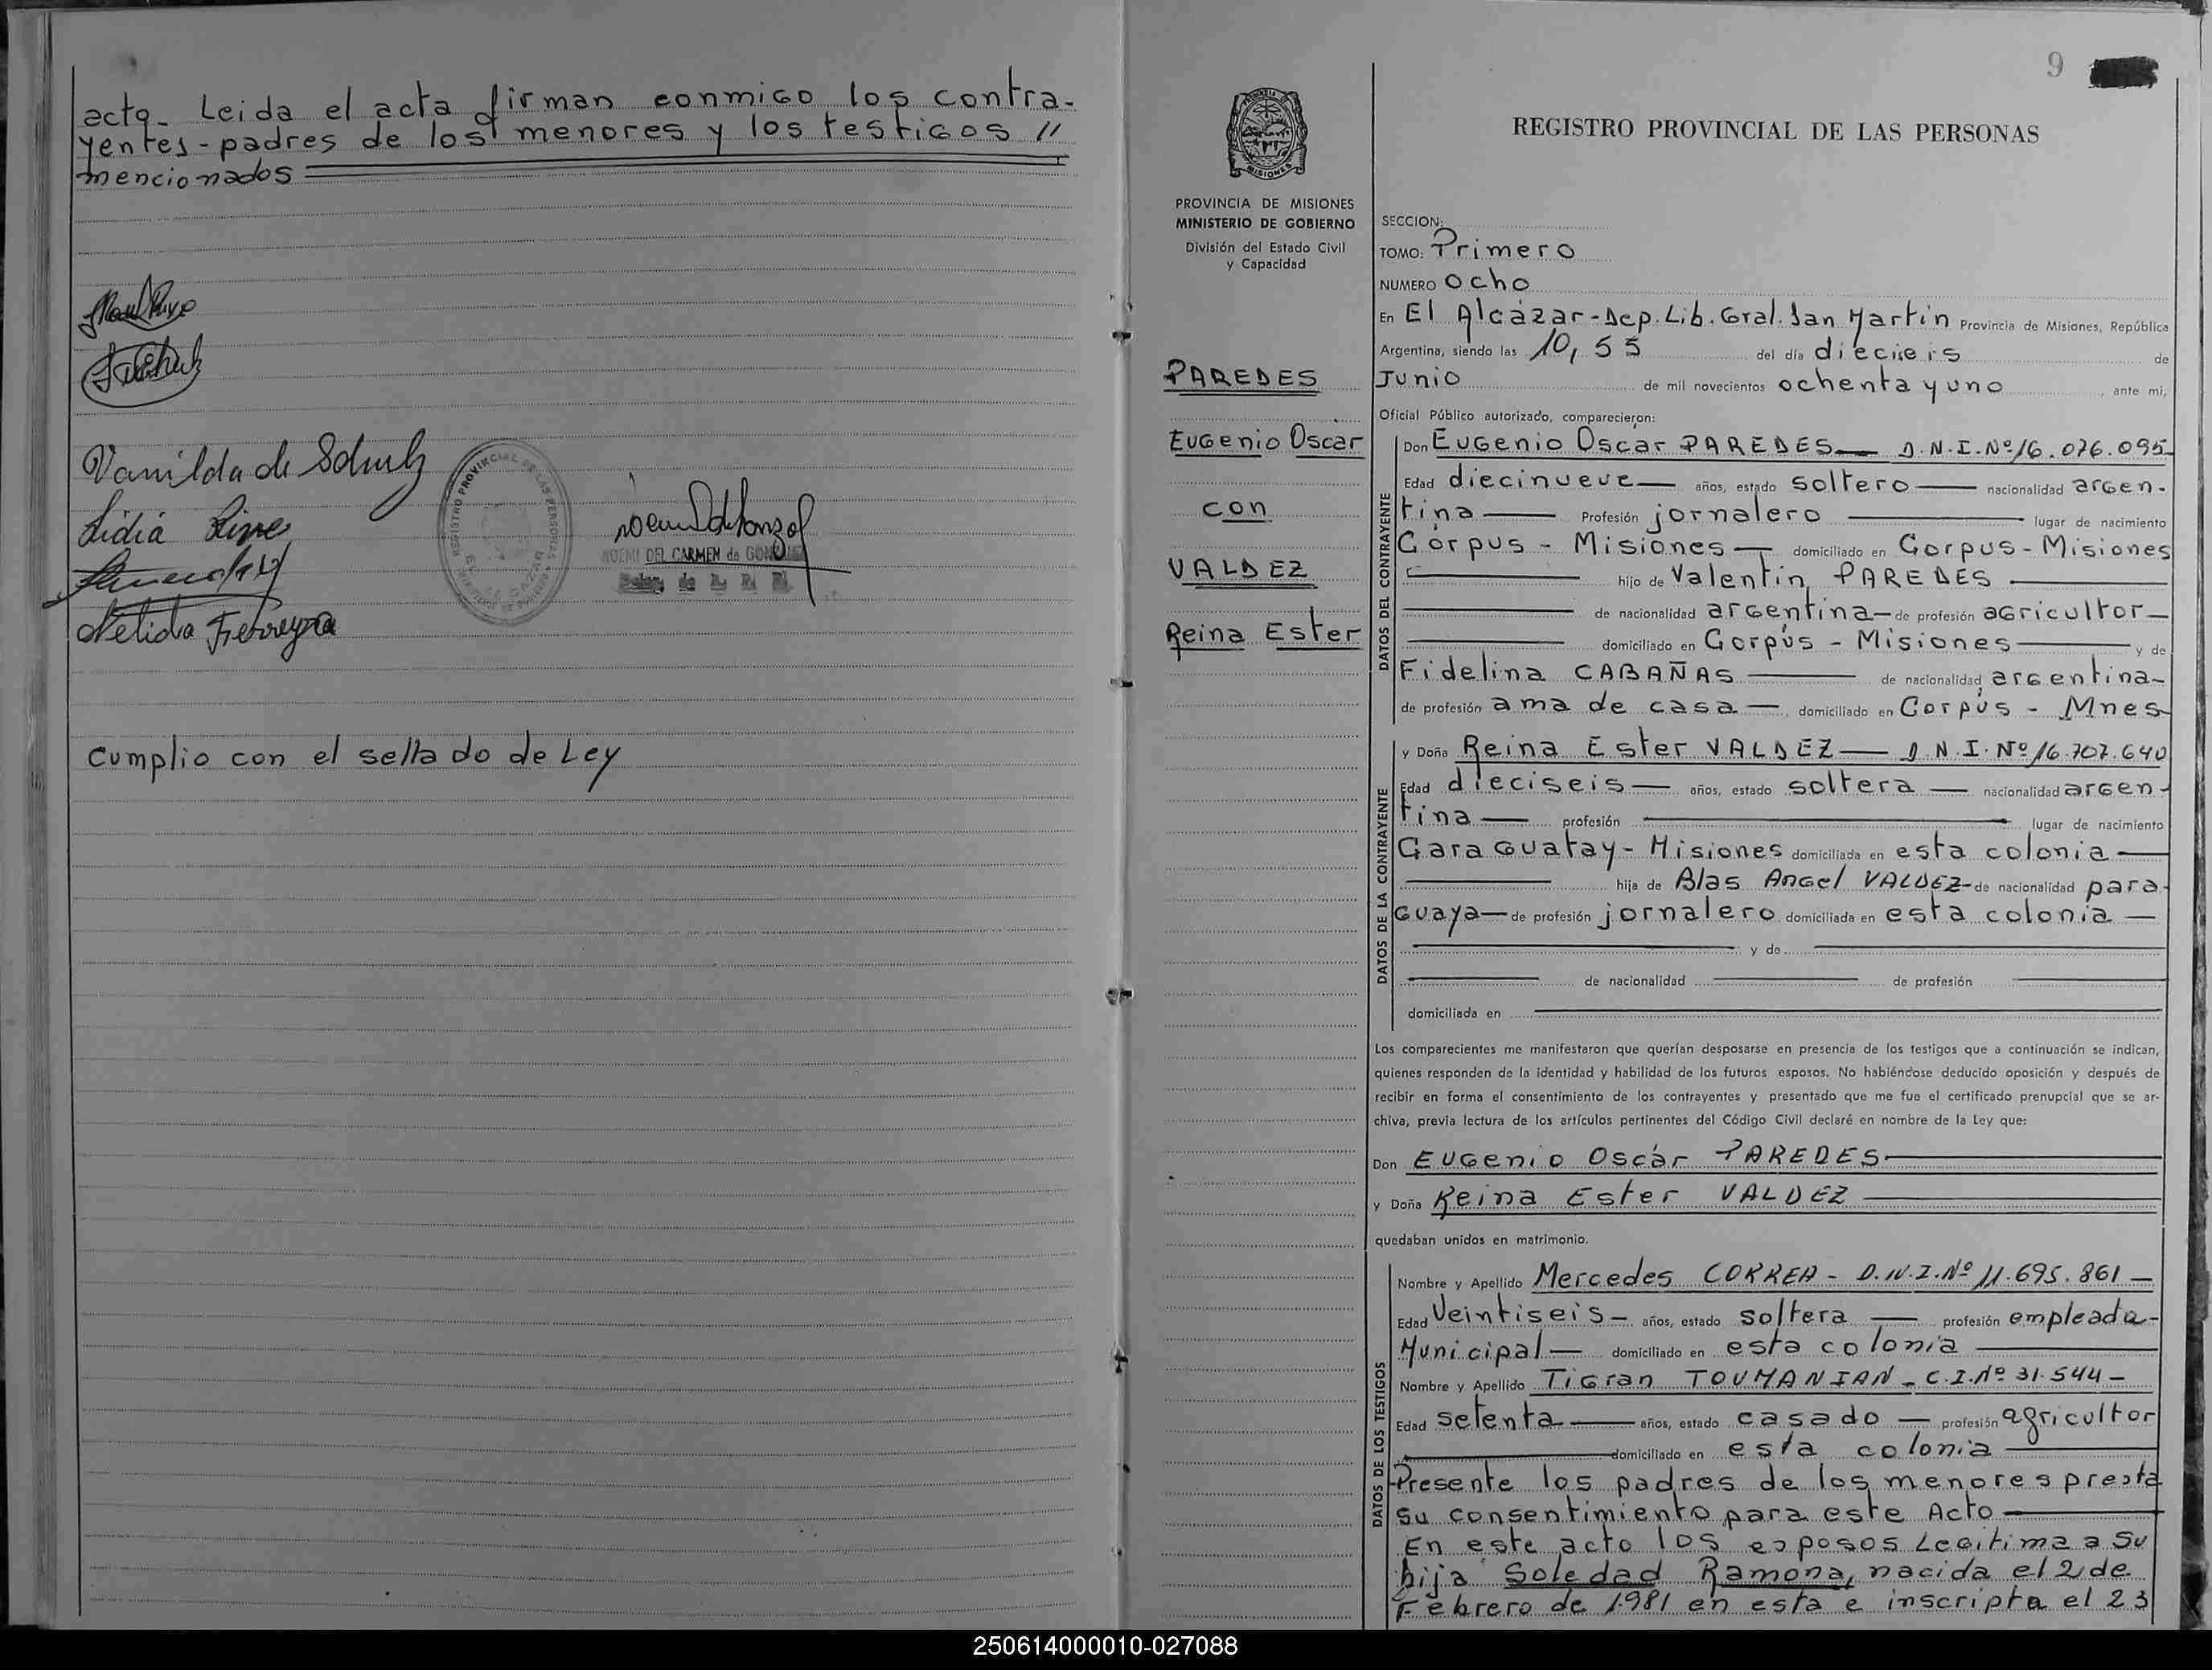 acto. Leida el acta firman conmigo los contra-
yentes - padres de los menores y los testigos //
mencionados
Vanilda de Schulz
Lidia
Nelida Ferreyra
REGISTRO PROVINCIAL DE LAS PERSONAS
NOEMI DEL CARMEN de
Cumplio con el sellado de Ley
9
REGISTRO PROVINCIAL DE LAS PERSONAS
MISIONES
PROVINCIA DE MISIONES
MINISTERIO DE GOBIERNO
División del Estado Civil
y Capacidad
PAREDES
Eugenio Oscar
con
VALDEZ
Reina Ester
SECCION:
TOMO: Primero
NUMERO Ocho
En El Alcázar - Dep. Lib. Gral. San Martin Provincia de Misiones, República
Argentina, siendo las 10,55 del día dieciseis de
Junio de mil novecientos ochenta y uno, ante mi,
Oficial Público autorizado, comparecieron:
DATOS DEL CONTRAYENTE
Don Eugenio Oscar PAREDES D.N.I.Nº 16.076.095
Edad diecinueve años, estado soltero nacionalidad argen-
tina Profesión jornalero lugar de nacimiento
Corpus - Misiones domiciliado en Corpus - Misiones
hijo de Valentin PAREDES
de nacionalidad argentina de profesión agricultor
domiciliado en Corpus - Misiones y de
Fidelina CABAÑAS de nacionalidad argentina
de profesión ama de casa domiciliado en Corpus - Mnes
DATOS DE LA CONTRAYENTE
y Doña Reina Ester VALDEZ D.N.I. Nº 16.707.640
Edad dieciseis años, estado soltera nacionalidad argen-
tina profesión lugar de nacimiento
Caraguatay - Misiones domiciliada en esta colonia
hija de Blas Angel VALDEZ de nacionalidad para-
guaya de profesión jornalero domiciliada en esta colonia
y de
de nacionalidad de profesión
domiciliada en
Los comparecientes me manifestaron que querían desposarse en presencia de los testigos que a continuación se indican,
quienes responden de la identidad y habilidad de los futuros esposos. No habiéndose deducido oposición y después de
recibir en forma el consentimiento de los contrayentes y presentado que me fue el certificado prenupcial que se ar-
chiva, previa lectura de los artículos pertinentes del Código Civil declaré en nombre de la Ley que:
Don Eugenio Oscar PAREDES
y Doña Reina Ester VALDEZ
quedaban unidos en matrimonio.
DATOS DE LOS TESTIGOS
Nombre y Apellido Mercedes CORREA - D.N.I.Nº 11.695.861
Edad Veintiseis años, estado soltera profesión empleada
Municipal domiciliado en esta colonia
Nombre y Apellido Tigran TOUMANIAN - C.I.Nº 31.544
Edad setenta años, estado casado profesión agricultor
domiciliado en esta colonia
Presente los padres de los menores presta
su consentimiento para este Acto
En este acto los esposos Legitima a su
hija Soledad Ramona, nacida el 2 de
Febrero de 1981 en esta e inscripta el 23
250614000010-027088